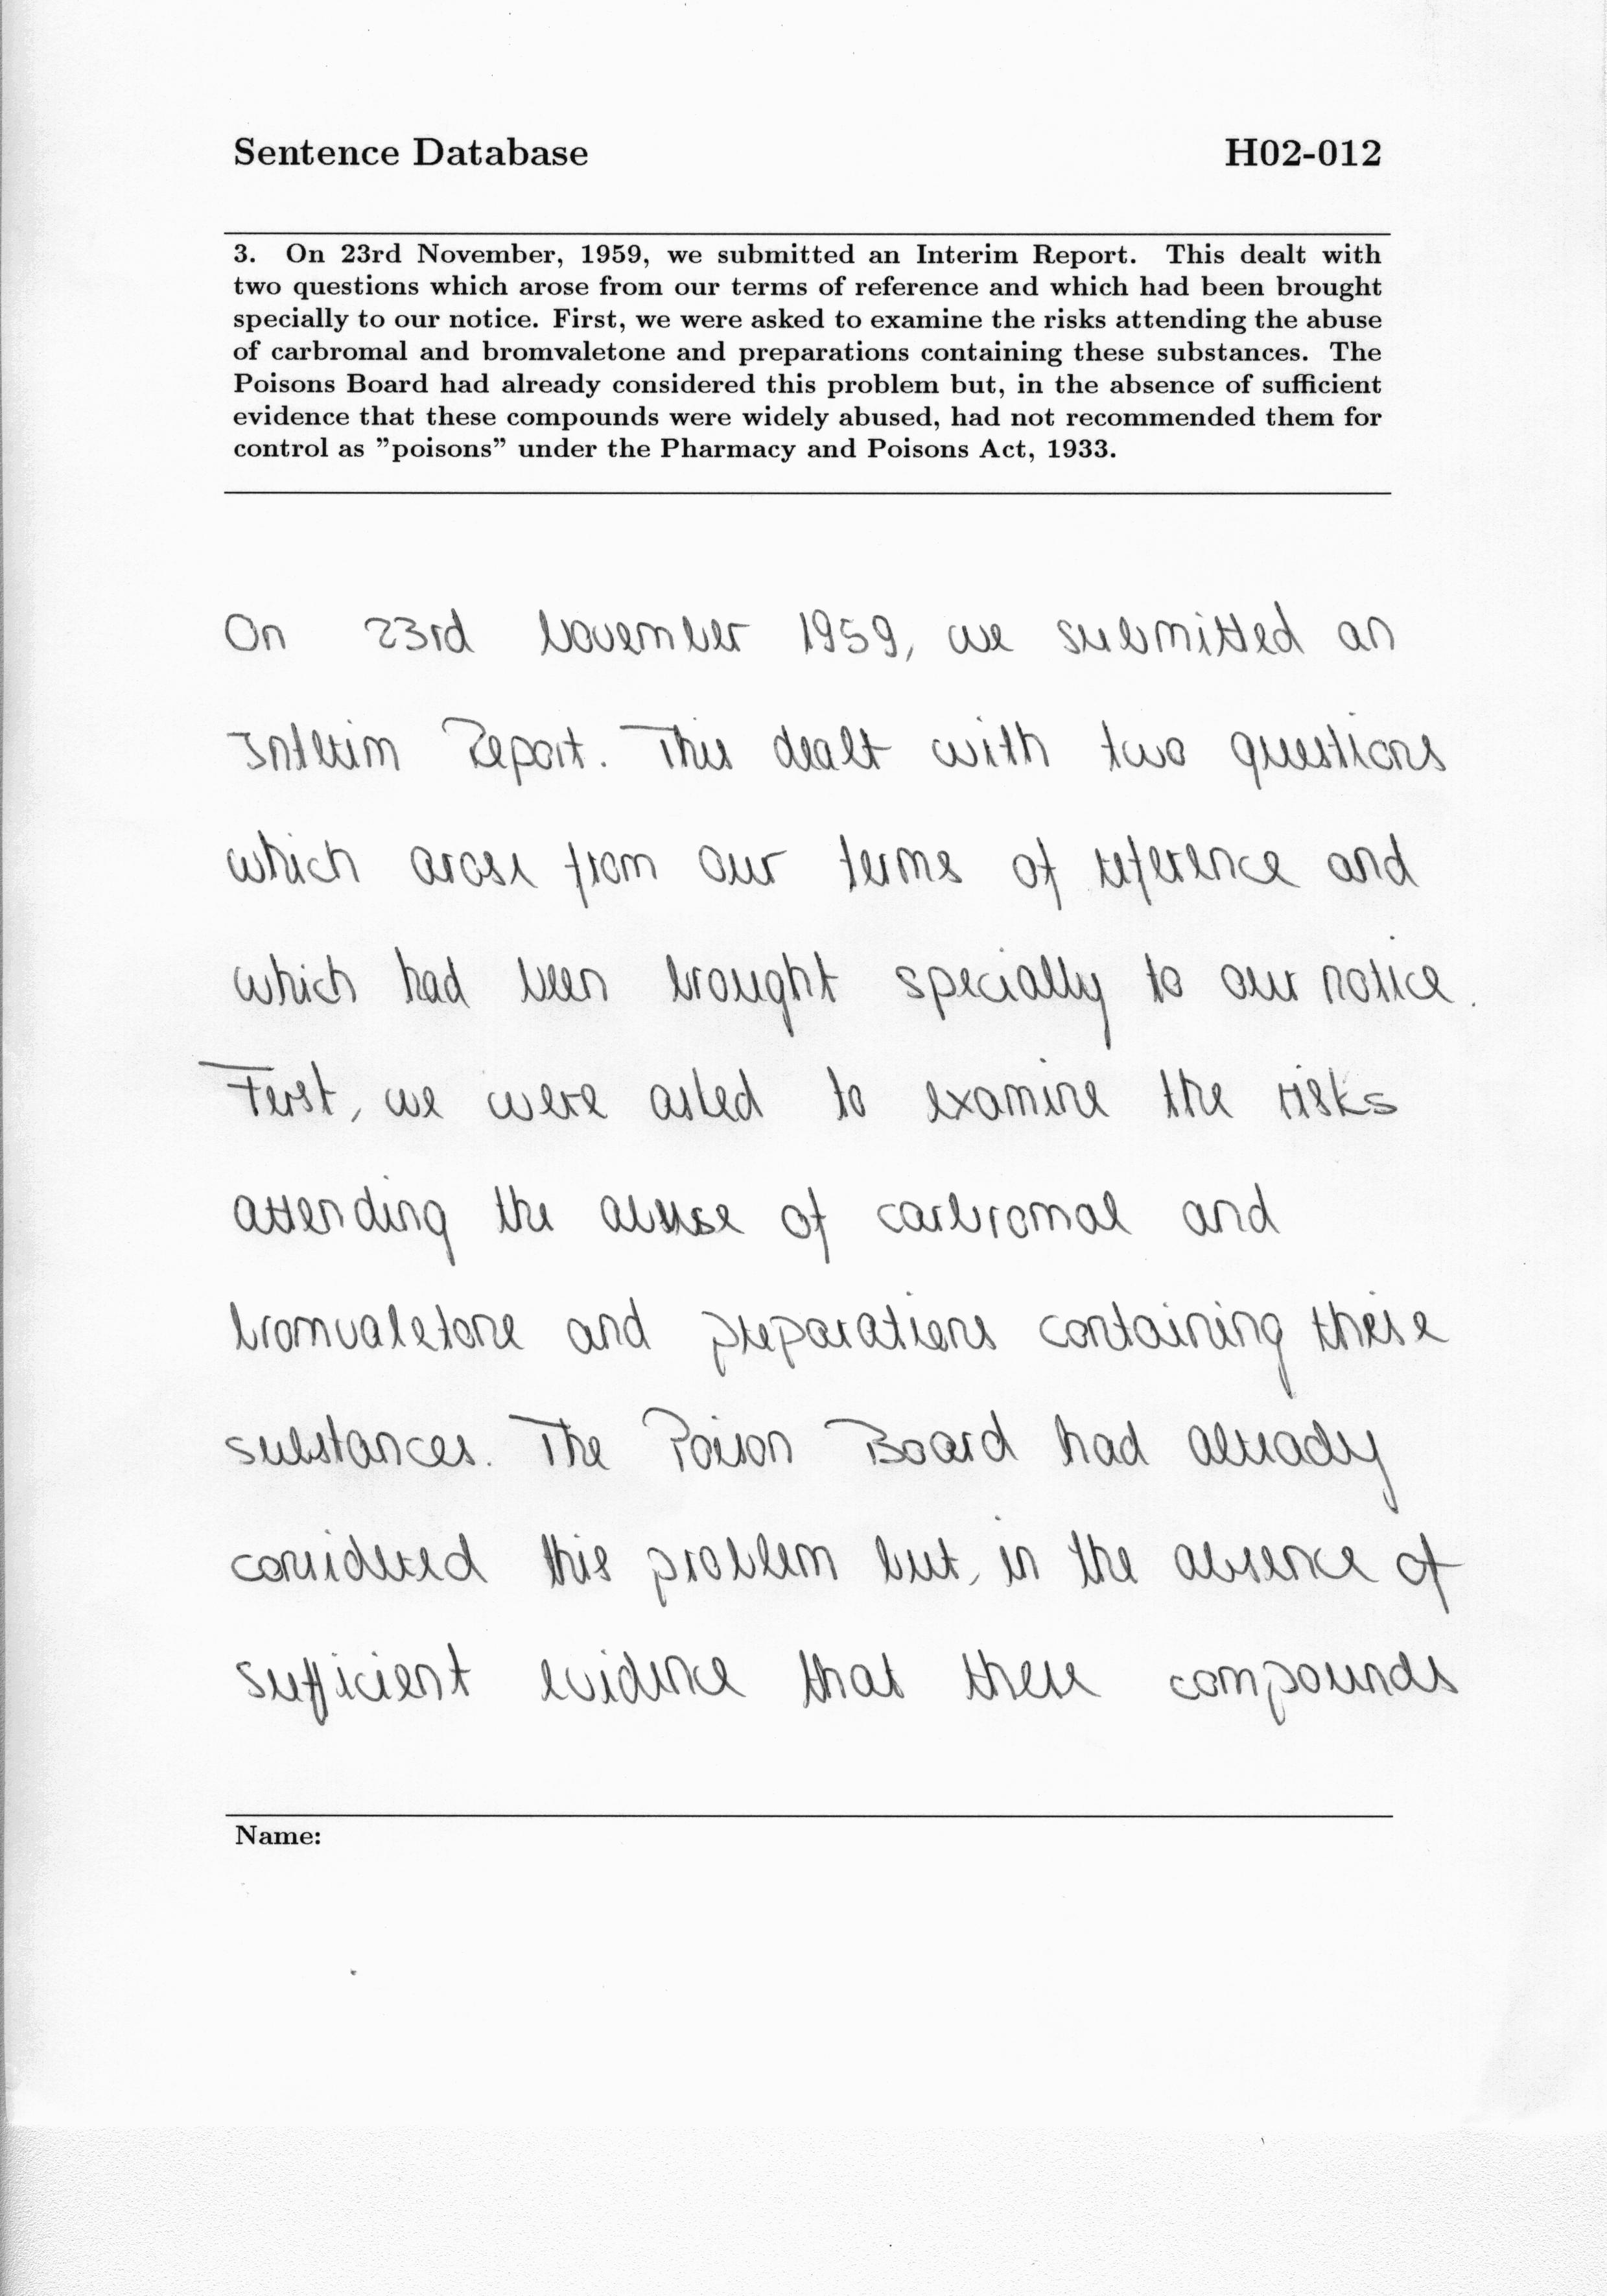 Sentence Database H02-012
3. On 23rd November, 1959, we submitted an Interim Report. This dealt with
two questions which arose from our terms of reference and which had been brought
specially to our notice. First, we were asked to examine the risks attending the abuse
of carbromal and bromvaletone and preparations containing these substances. The
Poisons Board had already considered this problem but, in the absence of sufficient
evidence that these compounds were widely abused, had not recommended them for
control as ”poisons” under the Pharmacy and Poisons Act, 1933.
On 23rd November 1959, we submitted an
Interim Report. This dealt with two questions
which arose from our terms of reference and
which had been brought specially to our notice.
First, we were asked to examine the risks
attending the abuse of carbromal and
bromvaletone and preparations containing these
substances. The Poison Board had already
considered this problem but, in the absence of
sufficient evidence that these compounds
Name: